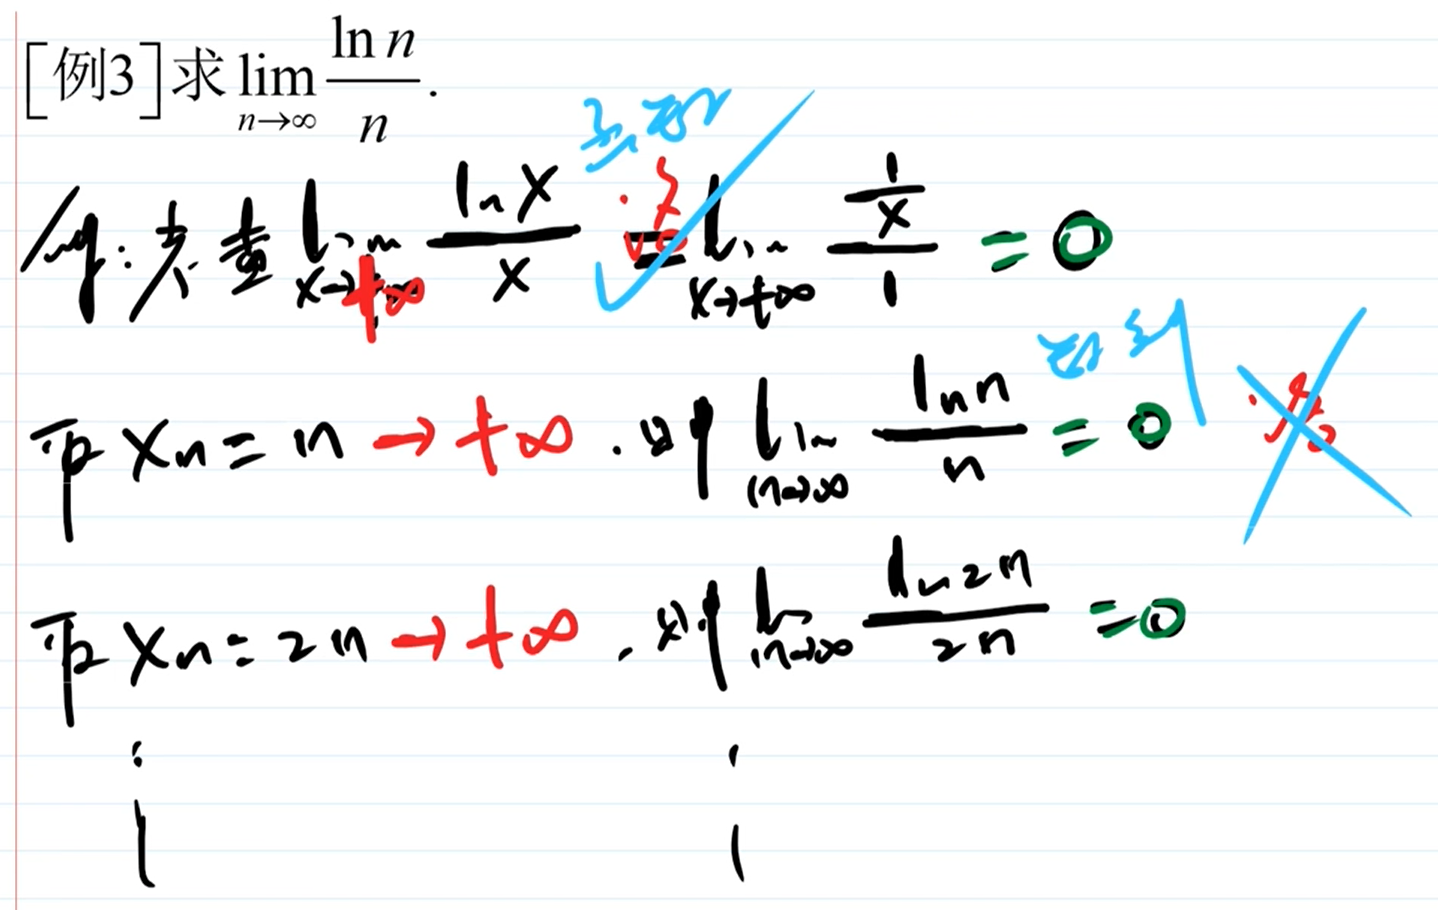 [例3]求 lim n→∞ ln n / n .
解:考查 lim x→+∞ ln x / x 洛 = lim x→+∞ (1/x) / 1 = 0
取 xn = n → +∞ . 则 lim n→∞ ln n / n = 0 数列 洛
取 xn = 2n → +∞ . 则 lim n→∞ ln 2n / 2n = 0